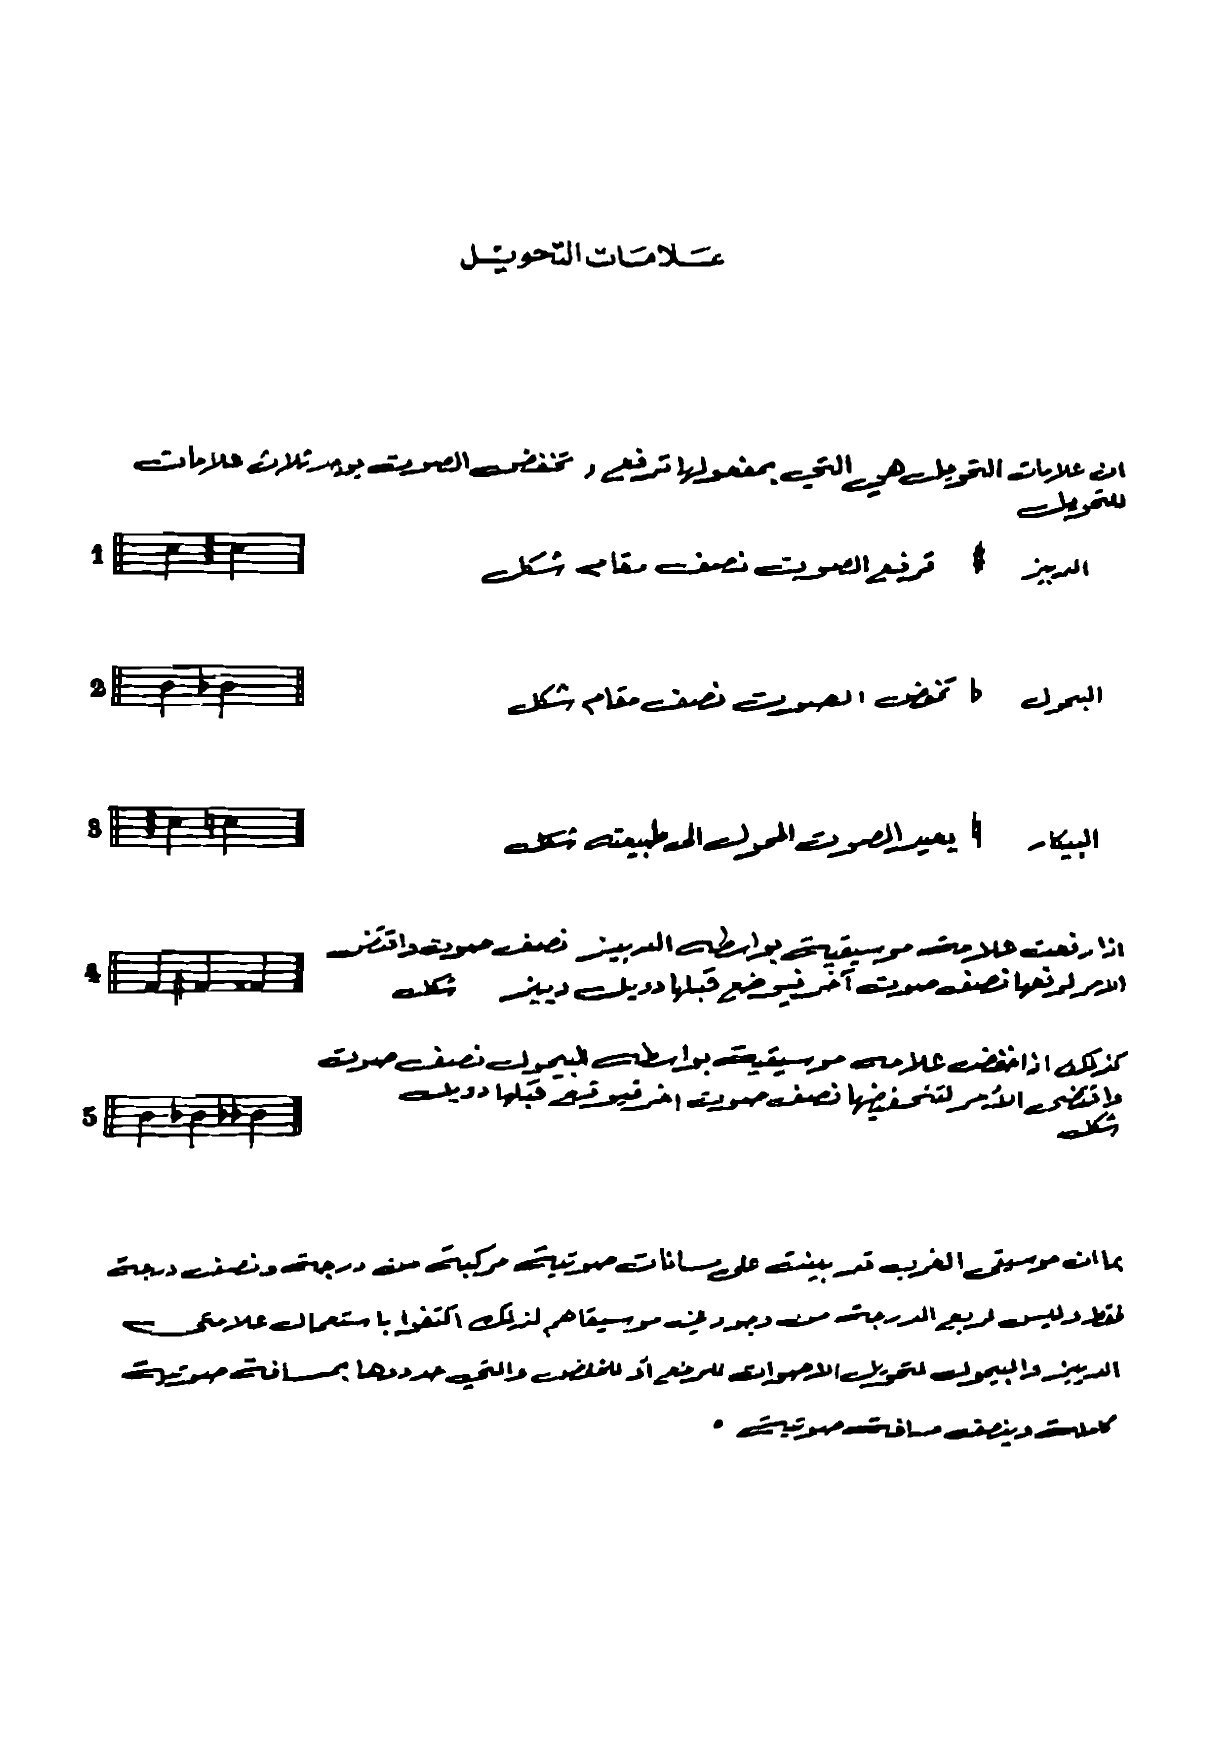 علامات التحويل
ان علامات التحويل هي التي بمفعولها ترفع و تخفض الصوت يوجد ثلاث علامات
للتحويل
1
الدييز ♯ ترفع الصوت نصف مقام شكل
2
البيمول ♭ تخفض الصوت نصف مقام شكل
3
البيكار ♮ يعيد الصوت المحول الى طبيعته شكل
اذا رفعت علامة موسيقية بواسطة الدييز نصف صوت واقتض
4
الامر لرفعها نصف صوت آخر فيوضع قبلها دوبل دييز شكل
كذلك اذا خفض علامه موسيقية بواسطة البيمول نصف صوت
5
واقتضى الأمر لتخفيضها نصف صوت اخر فيوقع قبلها دوبل
شكل
بما ان موسيقى الغرب قد بينت على مسافات صوتية مركبة من درجة ونصف درجة
فقط وليس لربع الدرجة من وجود في موسيقاهم لذلك اكتفوا باستعمال علامتي
الدييز والبيمول لتحويل الاصوات للرفع أو للخفض والتي حددها بمسافة صوتية
كاملة وبنصف مسافة صوتية .